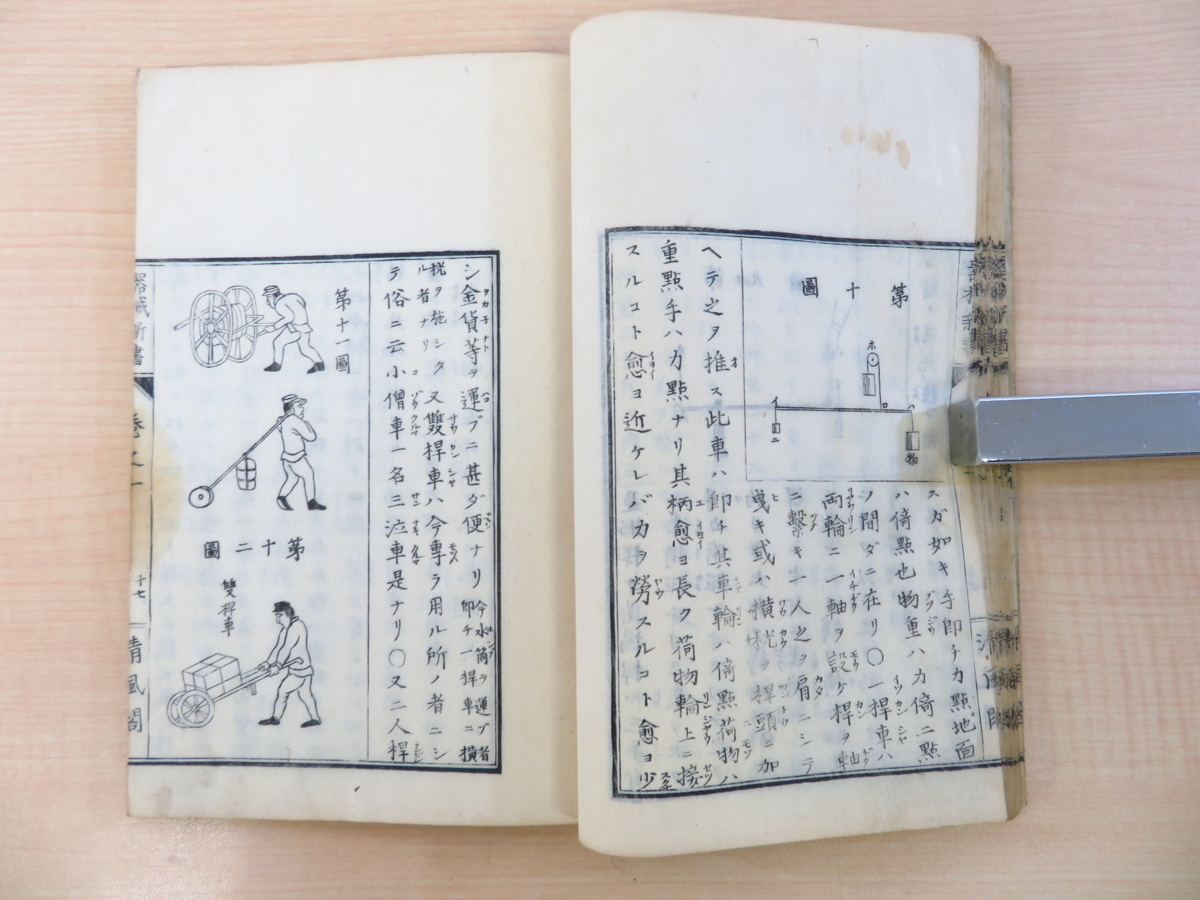 第十圖
ホ
イ
ロ
ニ
物
スガ如キ手即チカ點地面
ハ倚點也物重ハカ倚二點
ノ間ダニ在リ〇一桿車ハ
兩輪ニ一軸ヲ設ケ桿ヲ軸
ニ繫キ一人之ヲ肩ニシテ
曳キ或ハ橫杭ヲ桿頭ニ加
ヘテ之ヲ推ス此車ハ即チ其車輪ハ倚點荷物ハ
重點手ハカ點ナリ其柄愈ヨ長ク荷物輪上ニ接
スルコト愈ヨ近ケレバカヲ勞スルコト愈ヨ少
シ金貨等ヲ運ブニ甚ダ便ナリ今水筒ヲ運ブ者即チ一桿車ニ橫
杭ヲ施シタル者ナリ又雙桿車ハ今專ラ用ル所ノ者ニシ
テ俗ニ云小僧車一名三泣車是ナリ〇又二人桿
第十一圖
第十二圖
雙桿車
器械新書
卷之一
十七
清風閣